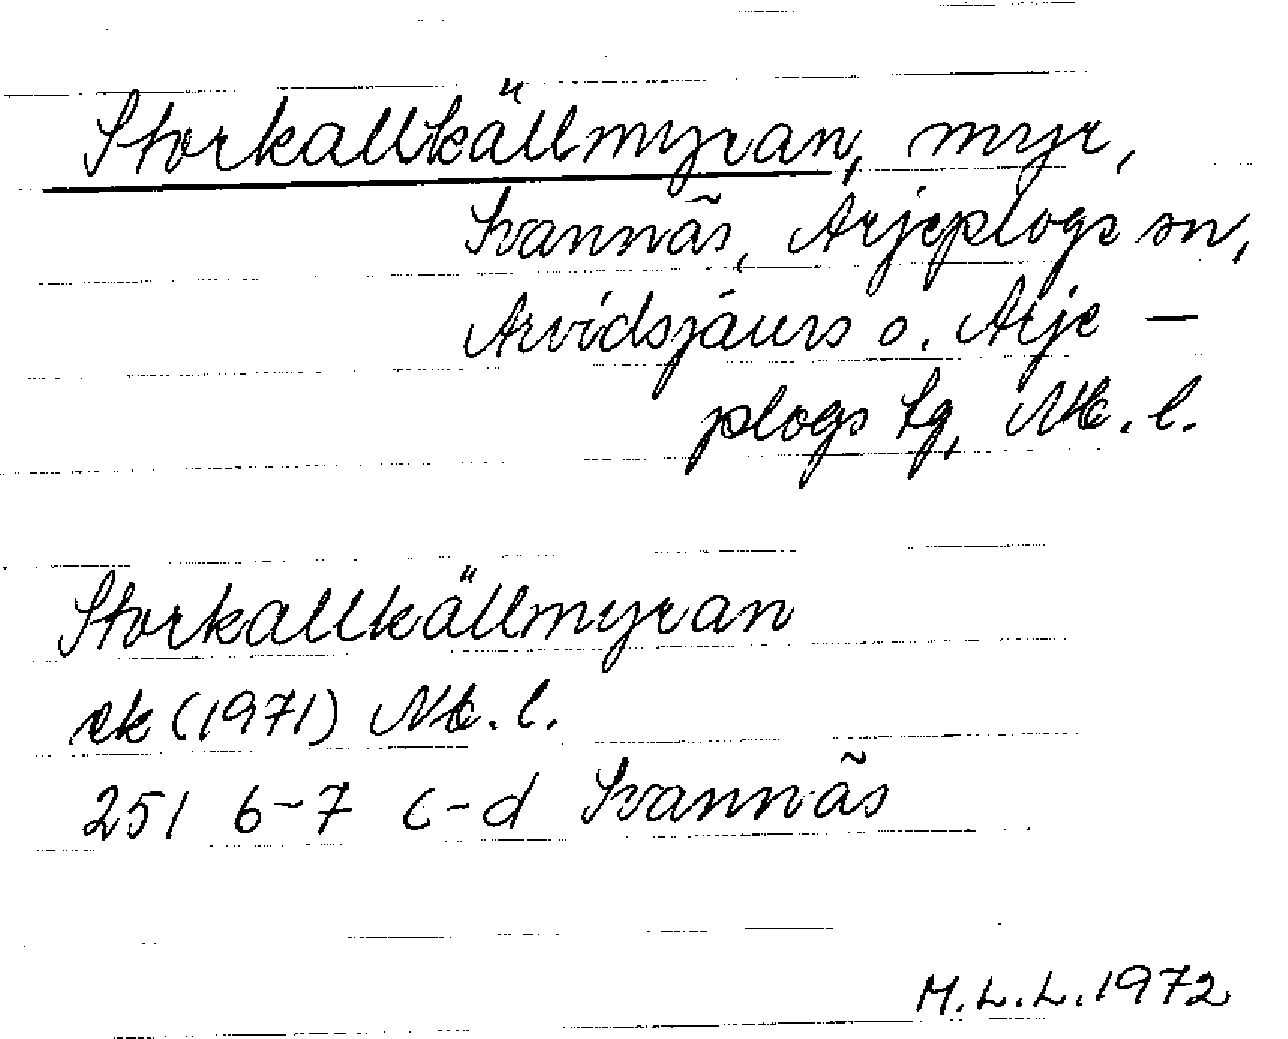 Storkallkällmyran, myr,
Svannäs, Arjeplogs sn,
Arvidsjaurs o. Arje-
plogs tg, Nb. l.
Storkallkällmyran
ek (1971) Nb. l.
251 6-7 c-d Svannäs
M.L.L. 1972